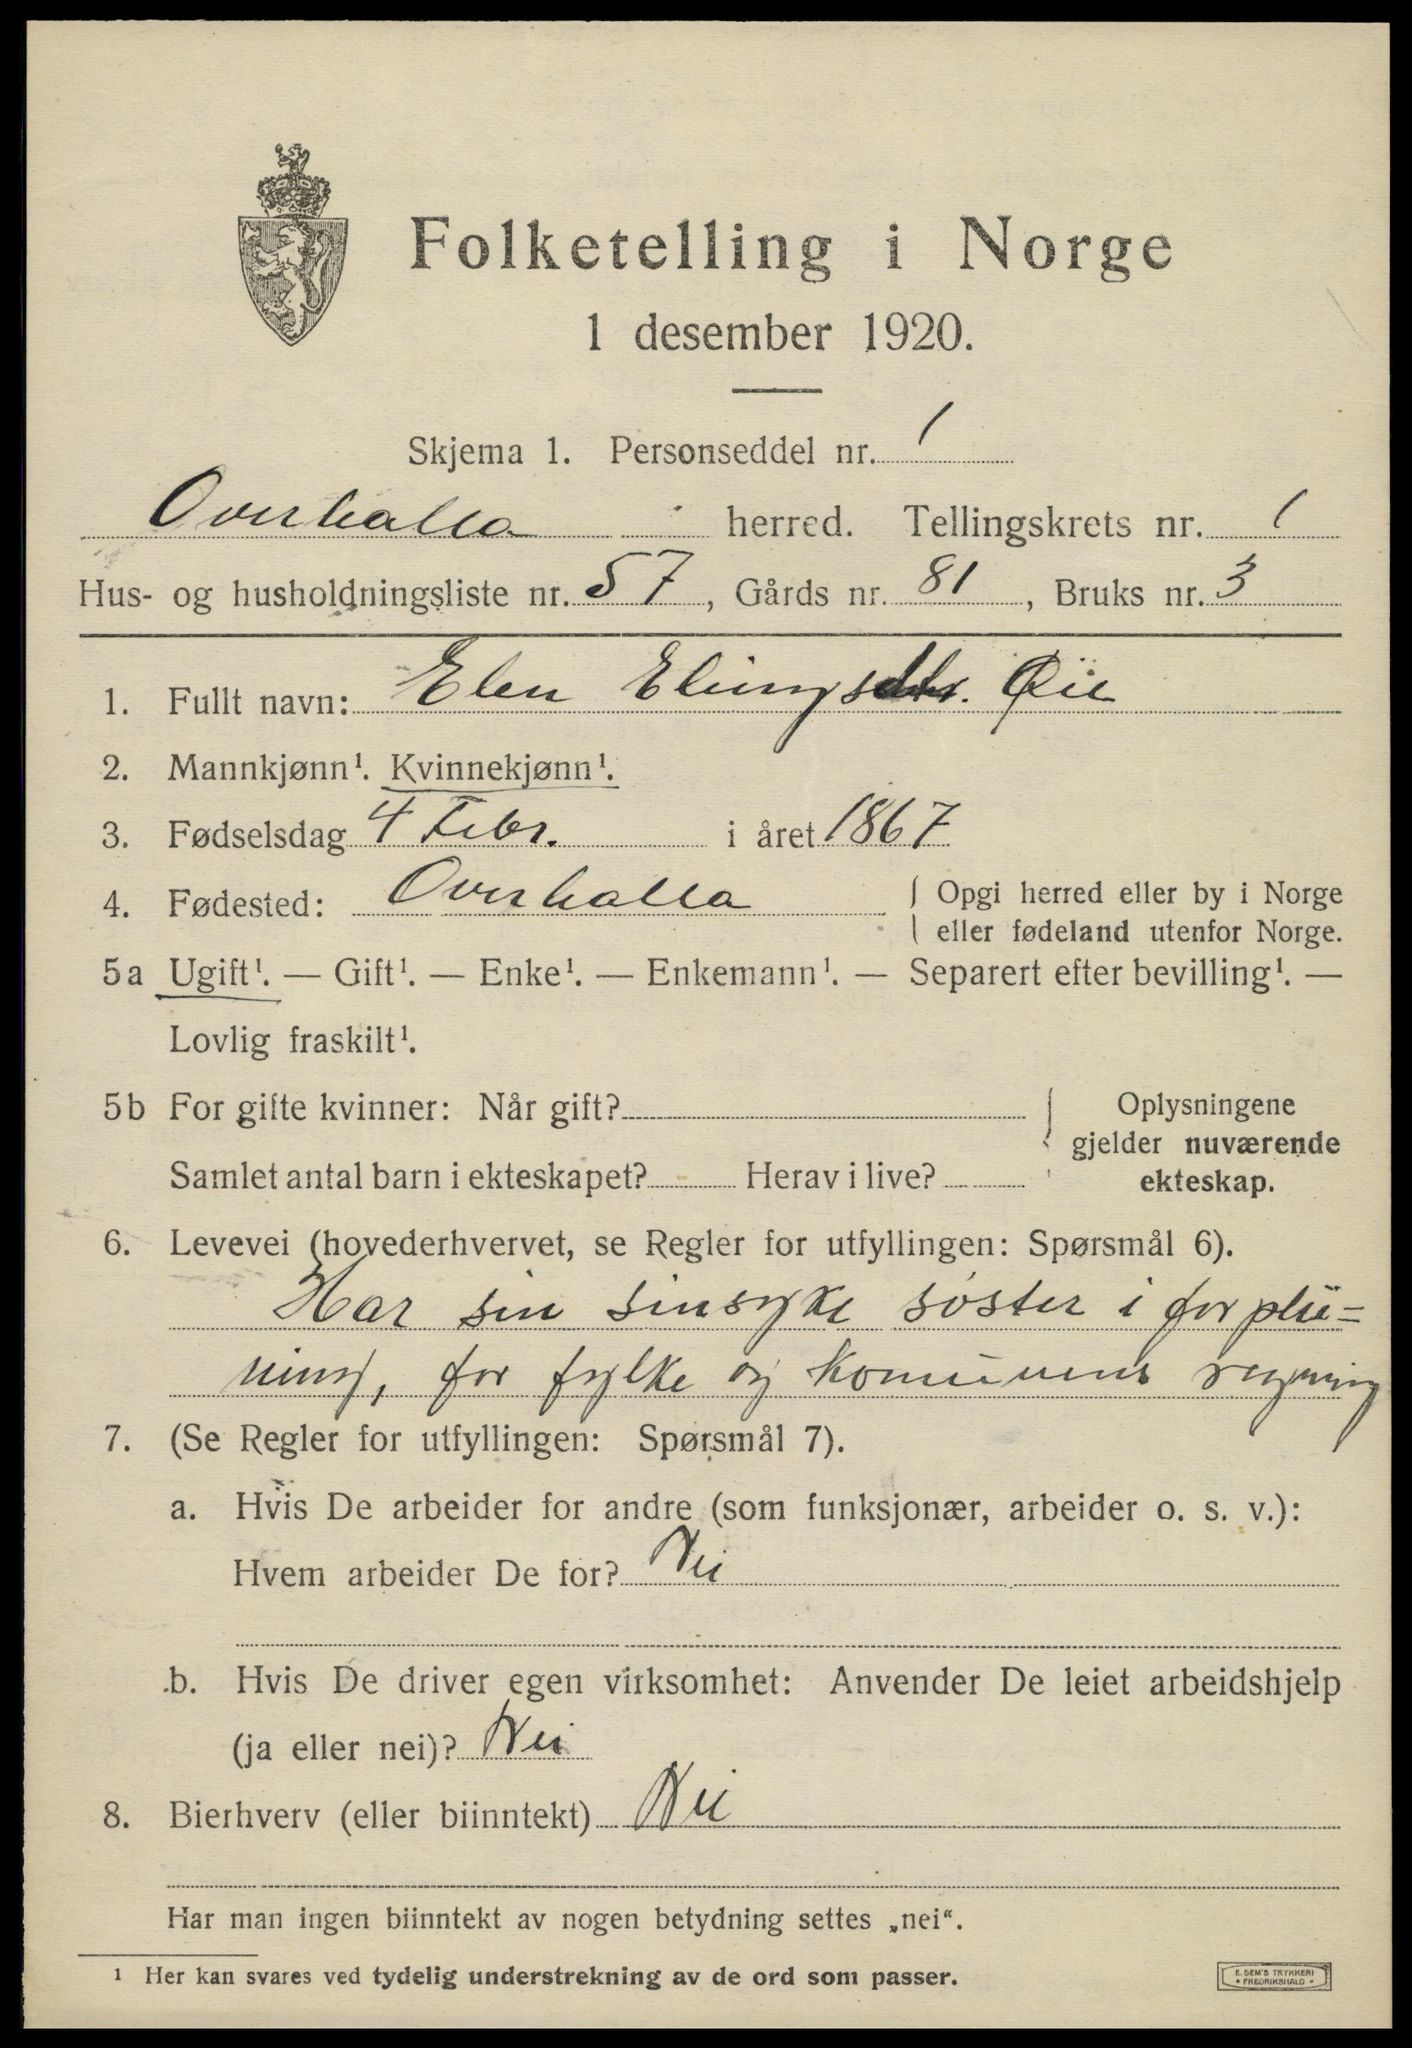 Folketelling i Norge
1 desember 1920.
Skjema 1. Personseddel nr. 1
Overhalla herred. Tellingskrets nr. 1
Hus- og husholdningsliste nr. 57, Gårds nr. 81, Bruks nr. 3
1. Fullt navn: Elen Elingsdtr. Øie
2. Mannkjønn¹. Kvinnekjønn¹.
3. Fødselsdag 4 Febr. i året 1867
4. Fødested: Overhalla { Opgi herred eller by i Norge
eller fødeland utenfor Norge.
5a Ugift¹. — Gift¹. — Enke¹. — Enkemann¹. — Separert efter bevilling¹. —
Lovlig fraskilt¹.
5b For gifte kvinner: Når gift? { Oplysningene
gjelder nuværende
Samlet antal barn i ekteskapet? Herav i live? ekteskap.
6. Levevei (hovederhvervet, se Regler for utfyllingen: Spørsmål 6).
Har sin sinsyke søster i forplei=
ning, for fylke og komunens regning
7. (Se Regler for utfyllingen: Spørsmål 7).
a. Hvis De arbeider for andre (som funksjonær, arbeider o. s. v.):
Hvem arbeider De for? Nei
b. Hvis De driver egen virksomhet: Anvender De leiet arbeidshjelp
(ja eller nei)? Nei
8. Bierhverv (eller biinntekt) Nei
Har man ingen biinntekt av nogen betydning settes „nei“.
¹ Her kan svares ved tydelig understrekning av de ord som passer.
E. SEM'S TRYKKERI
• FREDRIKSHALD •